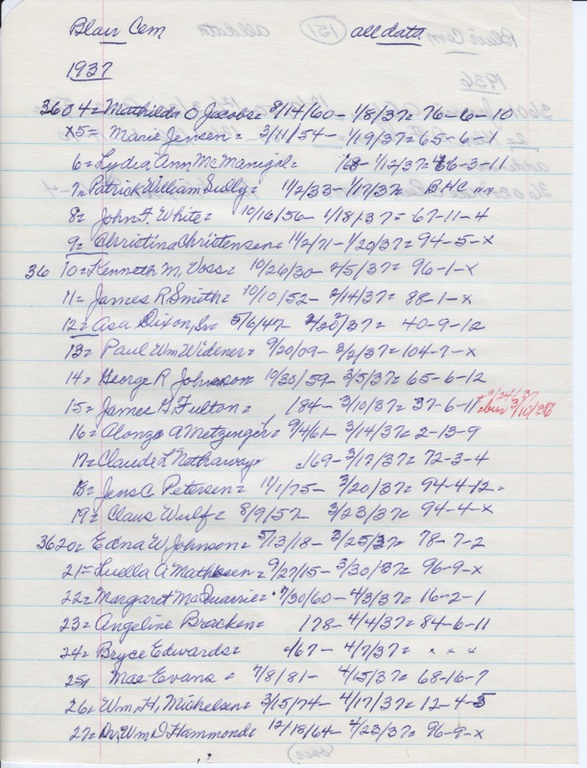 Blair Cem all data
1937
3604 = Mathilda O Jacobs = 8/14/60 - 1/8/37 = 76-6-10
x5 = Marie Jensen = 3/11/54 - 1/19/37 = 65-6-1
6 = Lydia Ann McManigal = '68 - 1/12/37 = 66-3-11
7 = Patrick William Sully = 11/2/33 - 1/17/37 = B.H.C
8 = John F. White = 10/16/56 - 1/18/37 = 67-11-4
9 = Christina Christensen = 11/2/71 - 1/20/37 = 94-5-x
36 10 = Kenneth M. Voss = 10/26/30 - 2/5/37 = 96-1-x
11 = James R Smith = 10/10/52 - 2/14/37 = 88-1-x
12 = Asa Dixon, Sr = 5/6/47 - 2/20/37 = 40-9-12
13 = Paul Wm Widener = 9/20/09 - 3/2/37 = 104-7-x
14 = George R Johnson 10/30/59 - 3/5/37 = 65-6-12
15 = James G Fulton = 184 - 3/10/37 = 37-6-11
16 = Alonzo A Metzinger = 9/4/61 - 3/14/37 = 2-13-9
17 = Claude L Nothaway = /69 - 3/17/37 = 72-3-4
18 = Jens C Petersen = 11/1/75 - 3/20/37 = 94-4-12
19 = Claus Wulf = 8/9/57 - 3/23/37 = 94-4-x
3620 = Edna W. Johnson = 5/13/18 - 3/25/37 = 78-7-2
21 = Luella A Mathiesen = 9/27/15 - 3/30/37 = 96-9-x
22 = Margaret McQuarrie = 7/30/60 - 4/3/37 = 16-2-1
23 = Angeline Bracken = 178 - 4/4/37 = 84-6-11
24 = Bryce Edwards = /67 - 4/7/37 = x x x
25 Mae Evans = 7/8/81 - 4/15/37 = 68-16-7
26 = Wm. H. Michelsen = 3/15/74 - 4/17/37 = 12-4-5
27 = Dr. Wm D Hammond = 12/18/64 - 4/23/37 = 96-9-x